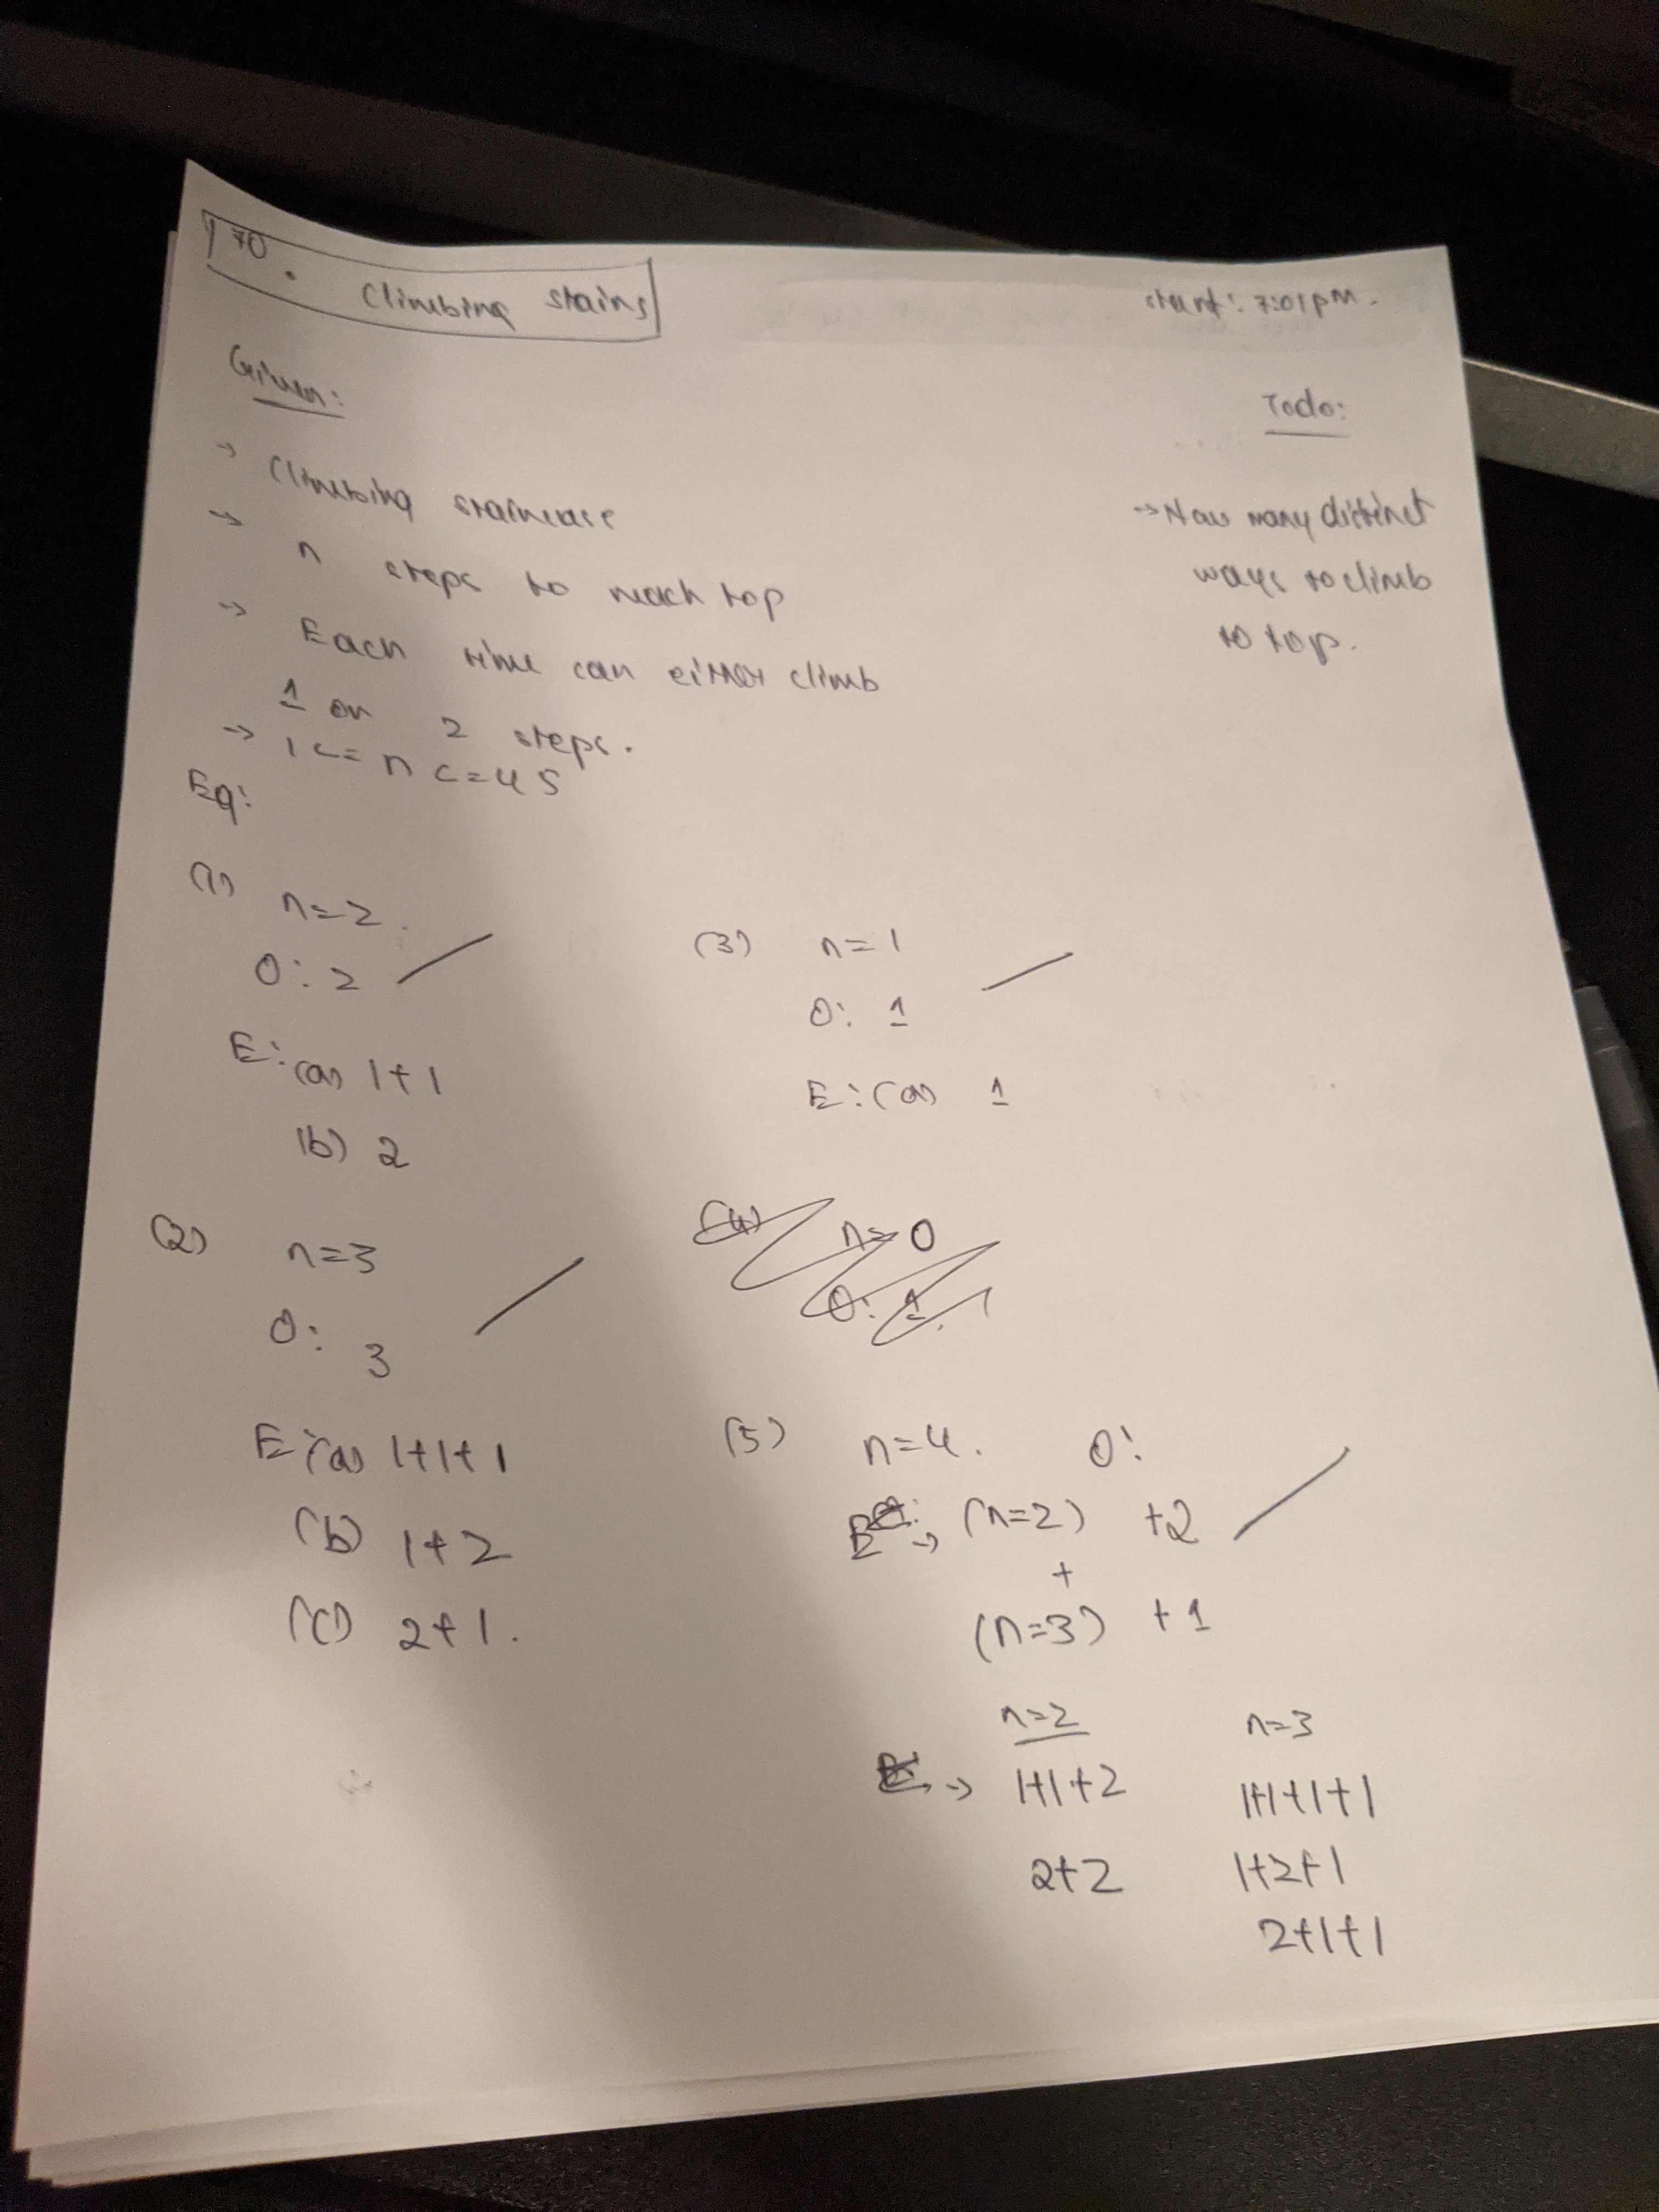 70. Climbing stairs
start: 7:01 PM.
Given:
→ Climbing staircase
→ n steps to reach top
→ Each time can either climb
1 or 2 steps.
→ 1 <= n <= 45
Todo:
→ How many distinct
ways to climb
to top.
Eg:
(1) n=2.
O: 2
E: (a) 1+1
(b) 2
(2) n=3
O: 3
E: (a) 1+1+1
(b) 1+2
(c) 2+1.
(3) n=1
O: 1
E: (a) 1
(4) n=0
O: 1.
(5) n=4. O:
→ (n=2) +2
+
(n=3) +1
n=2 n=3
→ 1+1+2 1+1+1+1
2+2 1+2+1
2+1+1